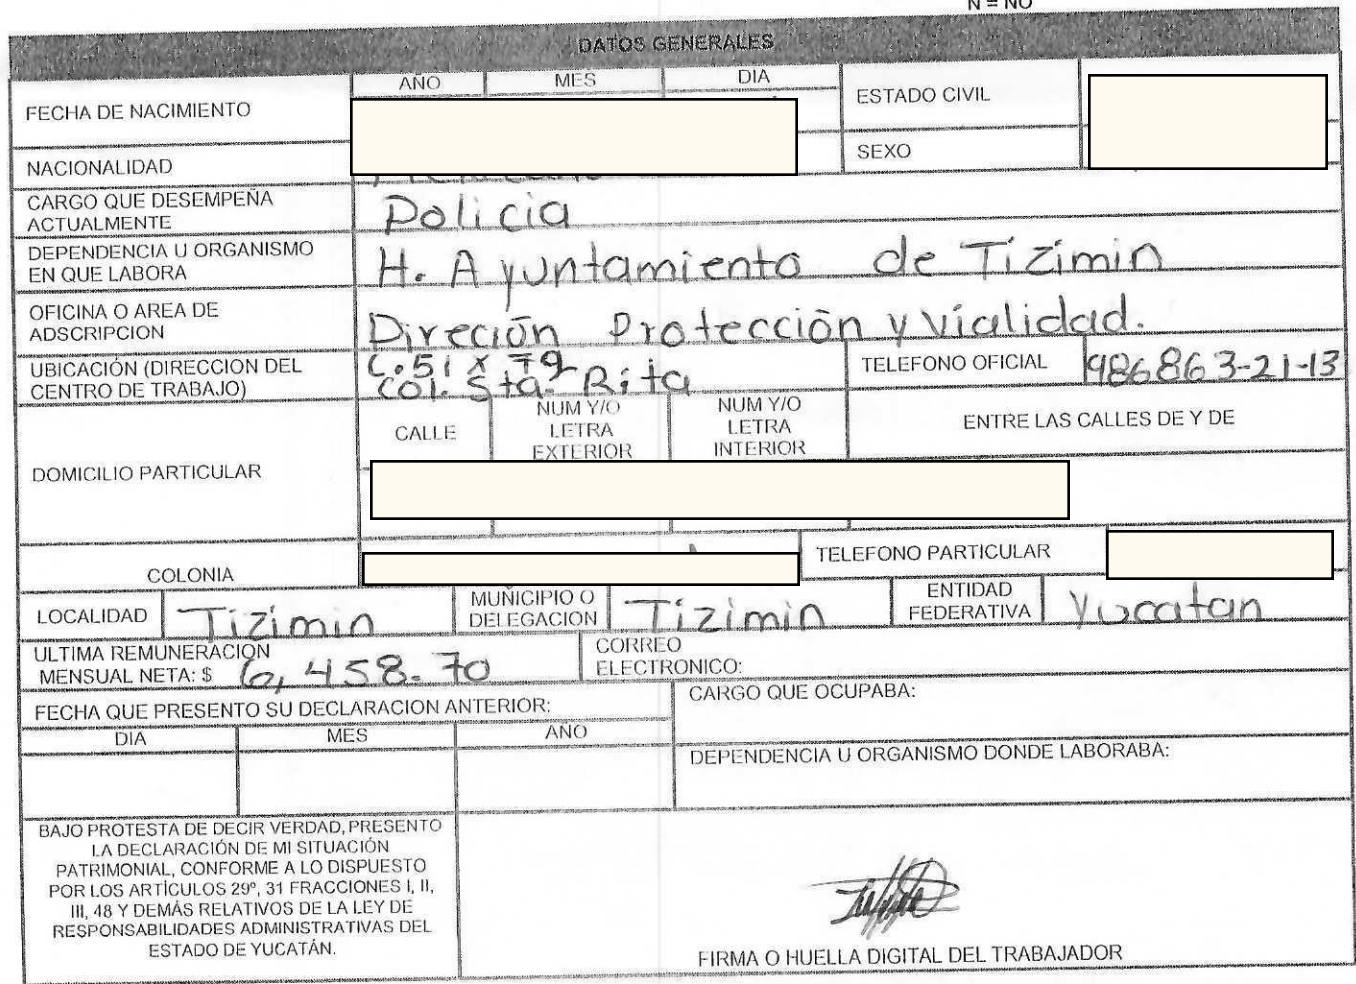 N = NO
DATOS GENERALES
FECHA DE NACIMIENTO
AÑO MES DIA
ESTADO CIVIL
NACIONALIDAD
SEXO
CARGO QUE DESEMPEÑA
ACTUALMENTE
Policia
DEPENDENCIA U ORGANISMO
EN QUE LABORA
H. Ayuntamiento de Tizimin
OFICINA O AREA DE
ADSCRIPCION
Direción Protección y vialidad.
UBICACIÓN (DIRECCION DEL
CENTRO DE TRABAJO)
C. 51 x 79
Col. Sta. Rita
TELEFONO OFICIAL
986863-21-13
DOMICILIO PARTICULAR
CALLE
NUM Y/O
LETRA
EXTERIOR
NUM Y/O
LETRA
INTERIOR
ENTRE LAS CALLES DE Y DE
COLONIA
TELEFONO PARTICULAR
LOCALIDAD
Tizimin
MUÑICIPIO O
DELEGACION
Tizimin
ENTIDAD
FEDERATIVA
Yucatan
ULTIMA REMUNERACION
MENSUAL NETA: $ 6,458.70
CORREO
ELECTRONICO:
FECHA QUE PRESENTO SU DECLARACION ANTERIOR:
DIA MES AÑO
CARGO QUE OCUPABA:
DEPENDENCIA U ORGANISMO DONDE LABORABA:
BAJO PROTESTA DE DECIR VERDAD, PRESENTO
LA DECLARACIÓN DE MI SITUACIÓN
PATRIMONIAL, CONFORME A LO DISPUESTO
POR LOS ARTÍCULOS 29º, 31 FRACCIONES I, II,
III, 48 Y DEMÁS RELATIVOS DE LA LEY DE
RESPONSABILIDADES ADMINISTRATIVAS DEL
ESTADO DE YUCATÁN.
FIRMA O HUELLA DIGITAL DEL TRABAJADOR